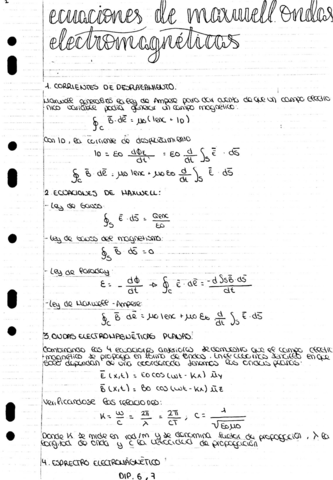 ecuaciones de maxwell. ondas
electromagnéticas
1. CORRIENTES DE DESPLAZAMIENTO.
Maxwell generalizó la ley de Ampere para dar cuenta de que un campo eléctrico variable podía generar un campo magnético.
∮c B̄·dē = μ0 (Ienc + ID)
Con ID, la corriente de desplazamiento
ID = ε0 dΦE/dt = ε0 d/dt ∫s Ē · dS̄
∮c B̄·dē = μ0 Ienc + μ0 ε0 d/dt ∫s Ē · dS̄
2. ECUACIONES DE MAXWELL:
- Ley de Gauss
∮s Ē · dS̄ = Qenc/ε0
- Ley de Gauss del magnetismo
∮s B̄ dS̄ = 0
- Ley de Faraday
ε = - dΦ/dt → ∮c Ē·dē = -d∫s B̄ dS̄/dt
- Ley de Maxwell - Ampere
∮c B̄ dē = μ0 Ienc + μ0 ε0 d/dt ∫s Ē·dS̄
3. ONDAS ELECTROMAGNÉTICAS PLANAS:
Combinando las 4 ecuaciones anteriores se demuestra que el campo electro
-magnético se propaga en forma de ondas. En el caso más sencillo en que
solo dependan de una coordenada tenemos las ondas planas:
Ē (x,t) = E0 cos (ωt - Kx) ūy
B̄ (x,t) = B0 cos (ωt - Kx) ūz
Verificandose las relaciones:
K = ω/c = 2π/λ = 2π/cT , c = 1/√ε0μ0
Donde K se mide en rad/m y se denomina factor de propagación, λ es
longitud de onda y c la velocidad de propagación
4. ESPECTRO ELECTROMAGNÉTICO:
DIP. 6, 7